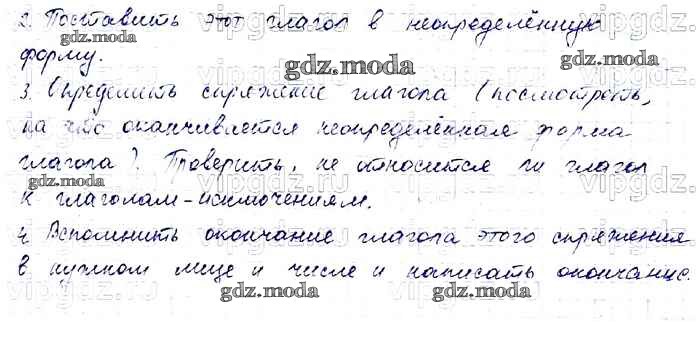 2. Поставить этот глагол в неопределённую
форму.
gdz.moda
3. Определить спряжение глагола (посмотреть,
на что оканчивается неопределённая форма
глагола). Проверить, не относится ли глагол
gdz.moda
gdz.moda
к глаголам-исключениям.
4. Вспомнить окончание глагола этого спряжения
gdz.moda
в нужном лице и числе и написать окончание.
vipgdz.ru
gdz.moda